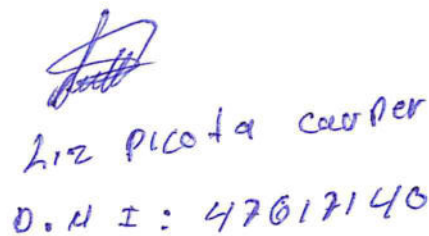 Liz Picota Carper
D.N I: 47617140